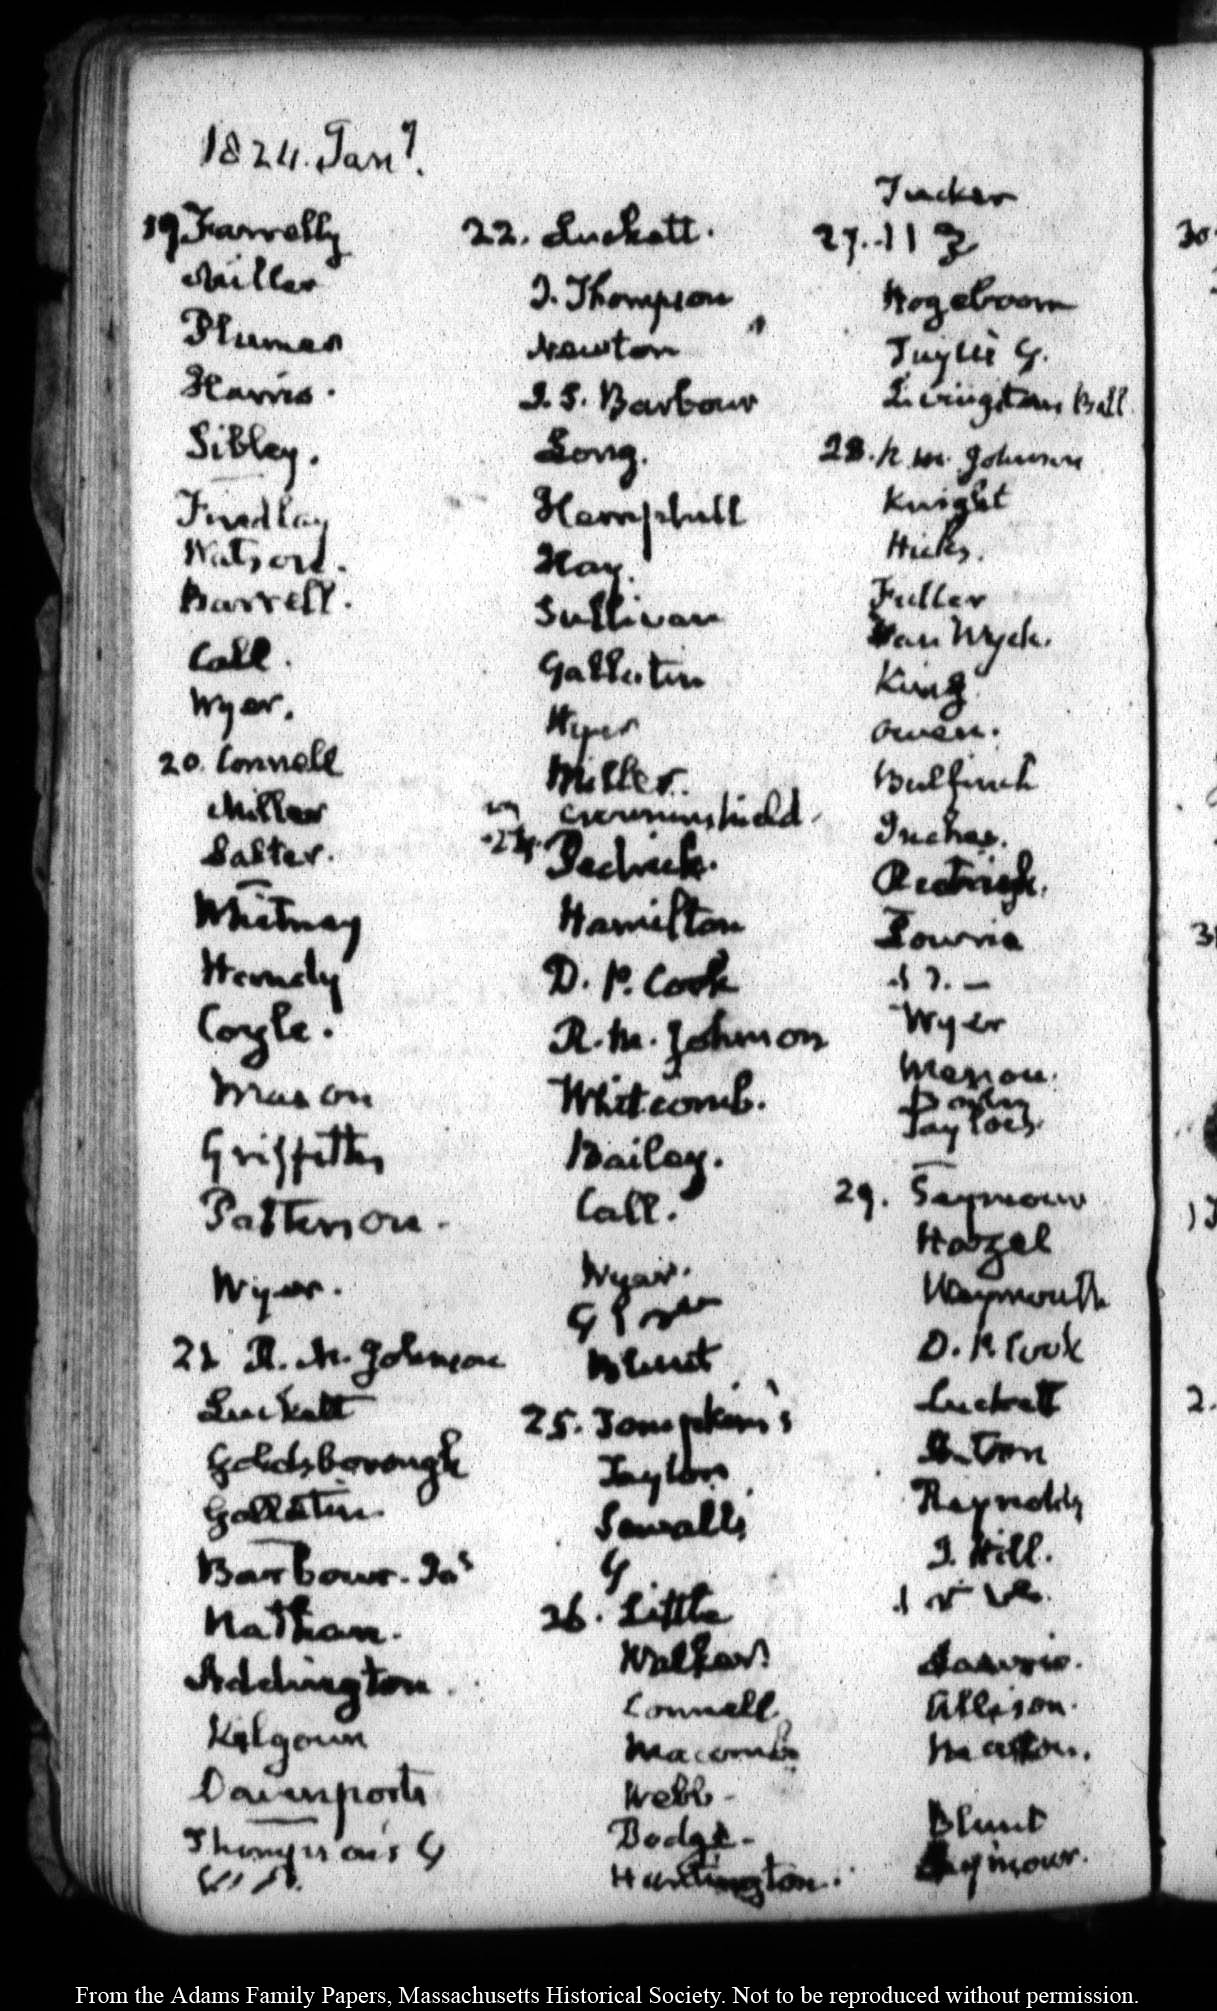 1824. Jany.
19 Farrelly
Miller
Plumer
Harris.
Sibley.
Findlay
Watson.
Barrell.
Call.
Wyer.
20. Connell
Miller
Salter.
Whitney
Handy
Coyle.
Mason
Griffith
Patterson.
Wyer.
21 R. M. Johnson
Luckett
Goldsborough
Gallatin
Barbour. Jas
Nathan.
Addington.
Kilgour
Davenports
Thompson's G
22. Luckett.
J. Thompson
Newton
J. S. Barbour
Long.
Hemphill
Hay.
Sullivan
Gallatin
Wyer
Miller.
Crowninshield.
24. Pedrick.
Hamilton
D. P. Cook
R. M. Johnson
Whitcomb.
Bailey.
Call.
Wyer.
Blunt
25. Tompkins's
Taylor
Sewalls
G
26. Little
Walker
Connell
Macomb
Webb-
Bodge-
Huntington.
Tucker
27.
Hogeboom
G.
Livingston Ball
28. R. M. Johnson
Knight
Hicks.
Fuller
Van Wyck.
King
Owen.
Bulfinch
Inches.
Lowrie
Wyer
Tayloes.
29. Seymour
Hazel
Weymouth
D. P. Cook
Luckett
Reynolds
J. Hill.
Lowrie.
Allison.
Blunt
Seymour.
30
31
2.
From the Adams Family Papers, Massachusetts Historical Society. Not to be reproduced without permission.